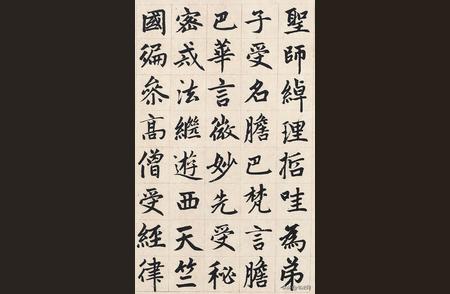 聖師綽理哲哇為弟
子受名膽巴梵言膽
巴華言微妙先受秘
密戒法繼遊西天竺
國徧參高僧受經律